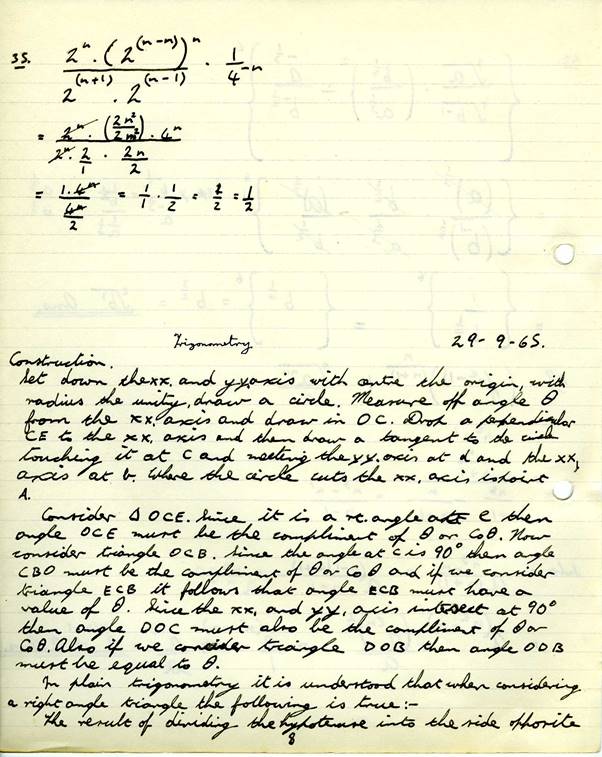 35. 2^n . (2^(n-n))^n / 2^(n+1) . 2^(n-1) . 1/4^-n
= 2^n . (2n²/2m²) . 4^n / 2^n . 2/1 . 2n/2
= 1.4^n / 4^n/2 = 1/1 . 1/2 = 2/2 = 1/2
Trigonometry 29-9-65.
Construction.
Set down the xx, and yy, axis with centre the origin, with
radius the unity, draw a circle. Measure off angle θ
from the xx, axis and draw in OC. Drop a perpendicular
CE to the xx, axis and then draw a tangent to the circle
touching it at C and meeting the yy, axis at d and the xx,
axis at b. Where the circle cuts the xx, axis is point
A.
Consider Δ OCE. Since it is a rt. angle at E then
angle OCE must be the compliment of θ or Coθ. Now
consider triangle OCB. Since the angle at C is 90° then angle
CBO must be the compliment of θ or Co θ and if we consider
triangle ECB it follows that angle ECB must have a
value of θ. Since the xx, and yy, axis intersect at 90°
then angle DOC must also be the compliment of θ or
Coθ. Also if we consider triangle DOB then angle ODB
must be equal to θ.
In plain trigonometry it is understood that when considering
a right angle triangle the following is true:-
The result of dividing the hypotenuse into the side opposite
8